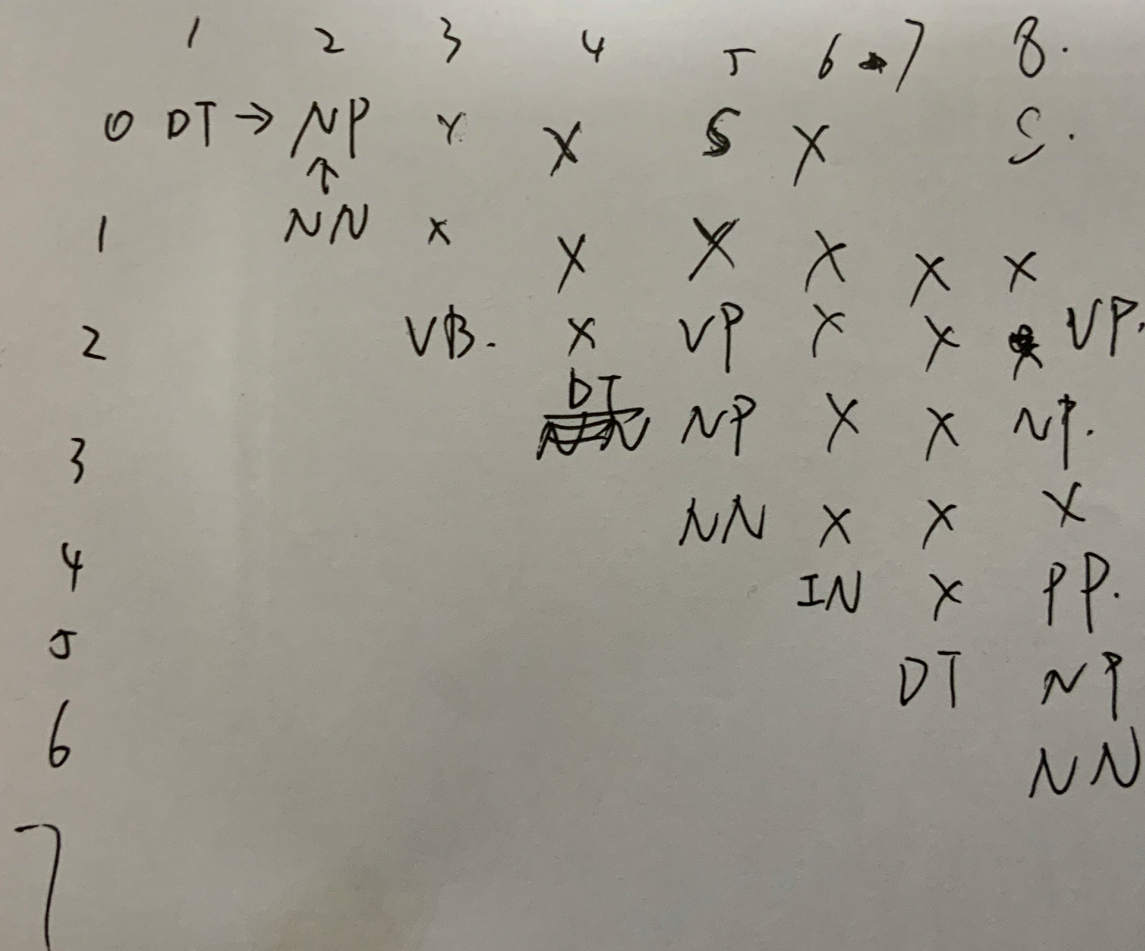 1 2 3 4 5 6 7 8.
0 DT → NP X X S X S.
↑
1 NN X X X X X X
2 VB. X VP X X X VP.
DT
3 NP X X NP.
4 NN X X X
5 IN X PP.
6 DT NP
7 NN